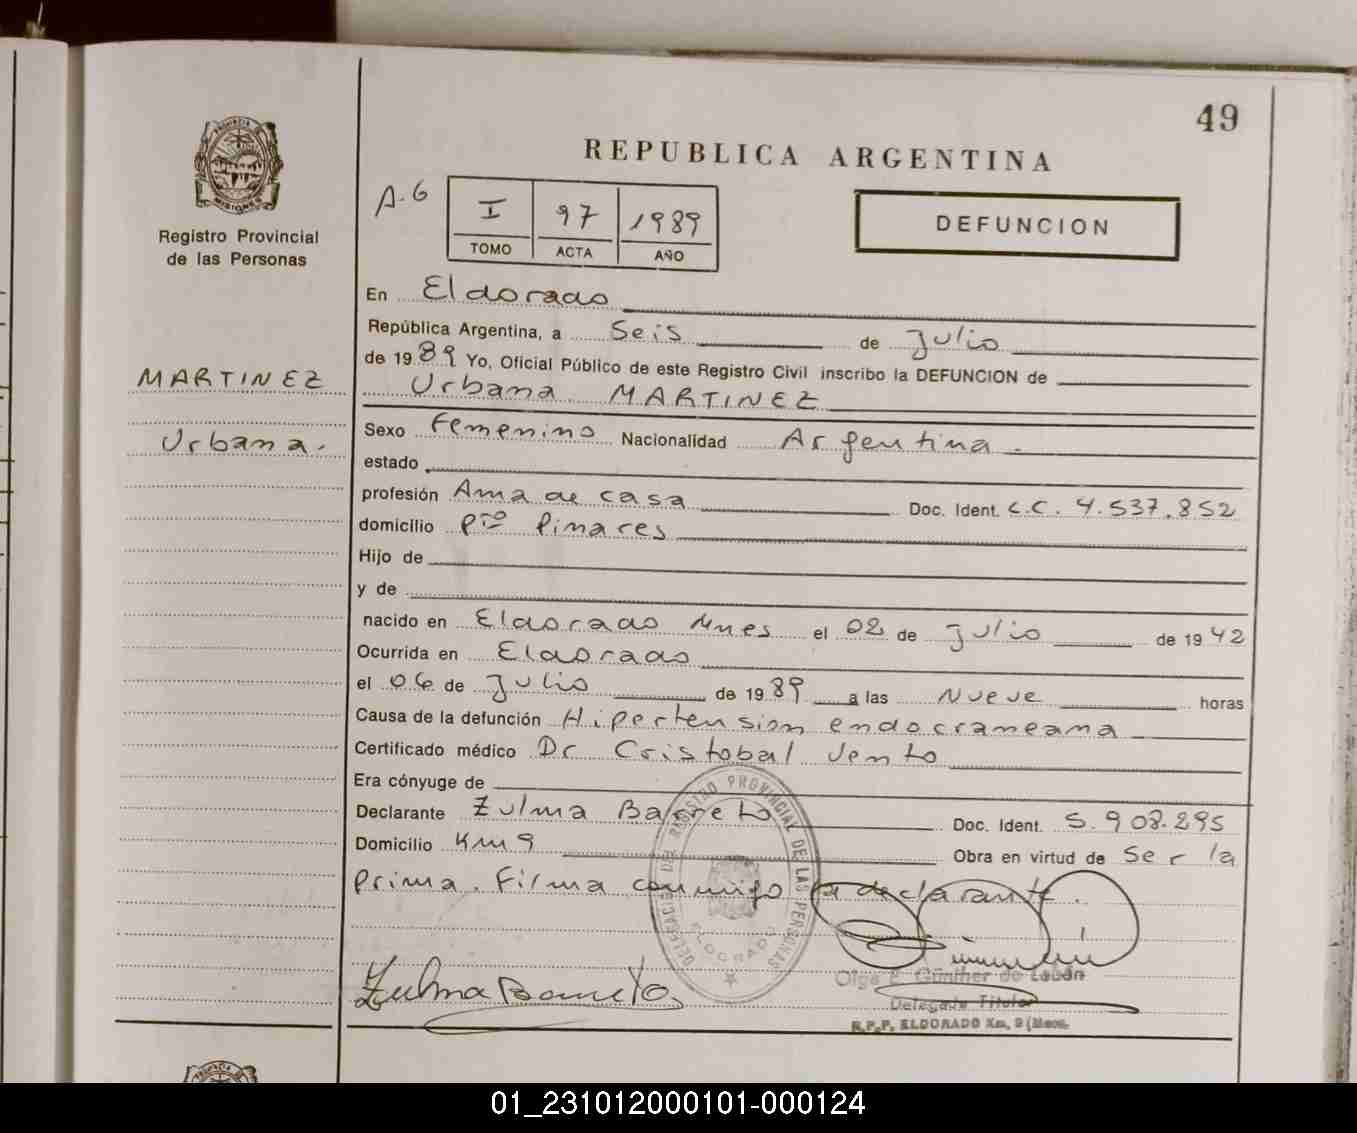 49
REPUBLICA ARGENTINA
PROVINCIA DE MISIONES
Registro Provincial
de las Personas
A-6
I 97 1989
TOMO ACTA AÑO
DEFUNCION
En Eldorado
República Argentina, a Seis de Julio
de 1989 Yo, Oficial Público de este Registro Civil inscribo la DEFUNCION de
MARTINEZ
Urbana MARTINEZ
Urbana.
Sexo Femenino Nacionalidad Argentina.
estado
profesión Ama de casa Doc. Ident. L.C. 4.537.852
domicilio Pto Pinares
Hijo de
y de
nacido en Eldorado Mnes el 02 de Julio de 1942
Ocurrida en Eldorado
el 06 de Julio de 1989 a las Nueve horas
Causa de la defunción Hipertension endocraneana
Certificado médico Dr Cristobal Vento
Era cónyuge de
Declarante Zulma Barreto Doc. Ident. 5.908.295
Domicilio Km 9 Obra en virtud de Ser la
prima. Firma conmigo la declarante.
DELEGACION DEL REGISTRO PROVINCIAL DE LAS PERSONAS
ELDORADO
Zulma Barreto
Olga E. Günther de
Delegada Titular
R.P.P. ELDORADO Km. 9 (Mnes.
01_231012000101-000124